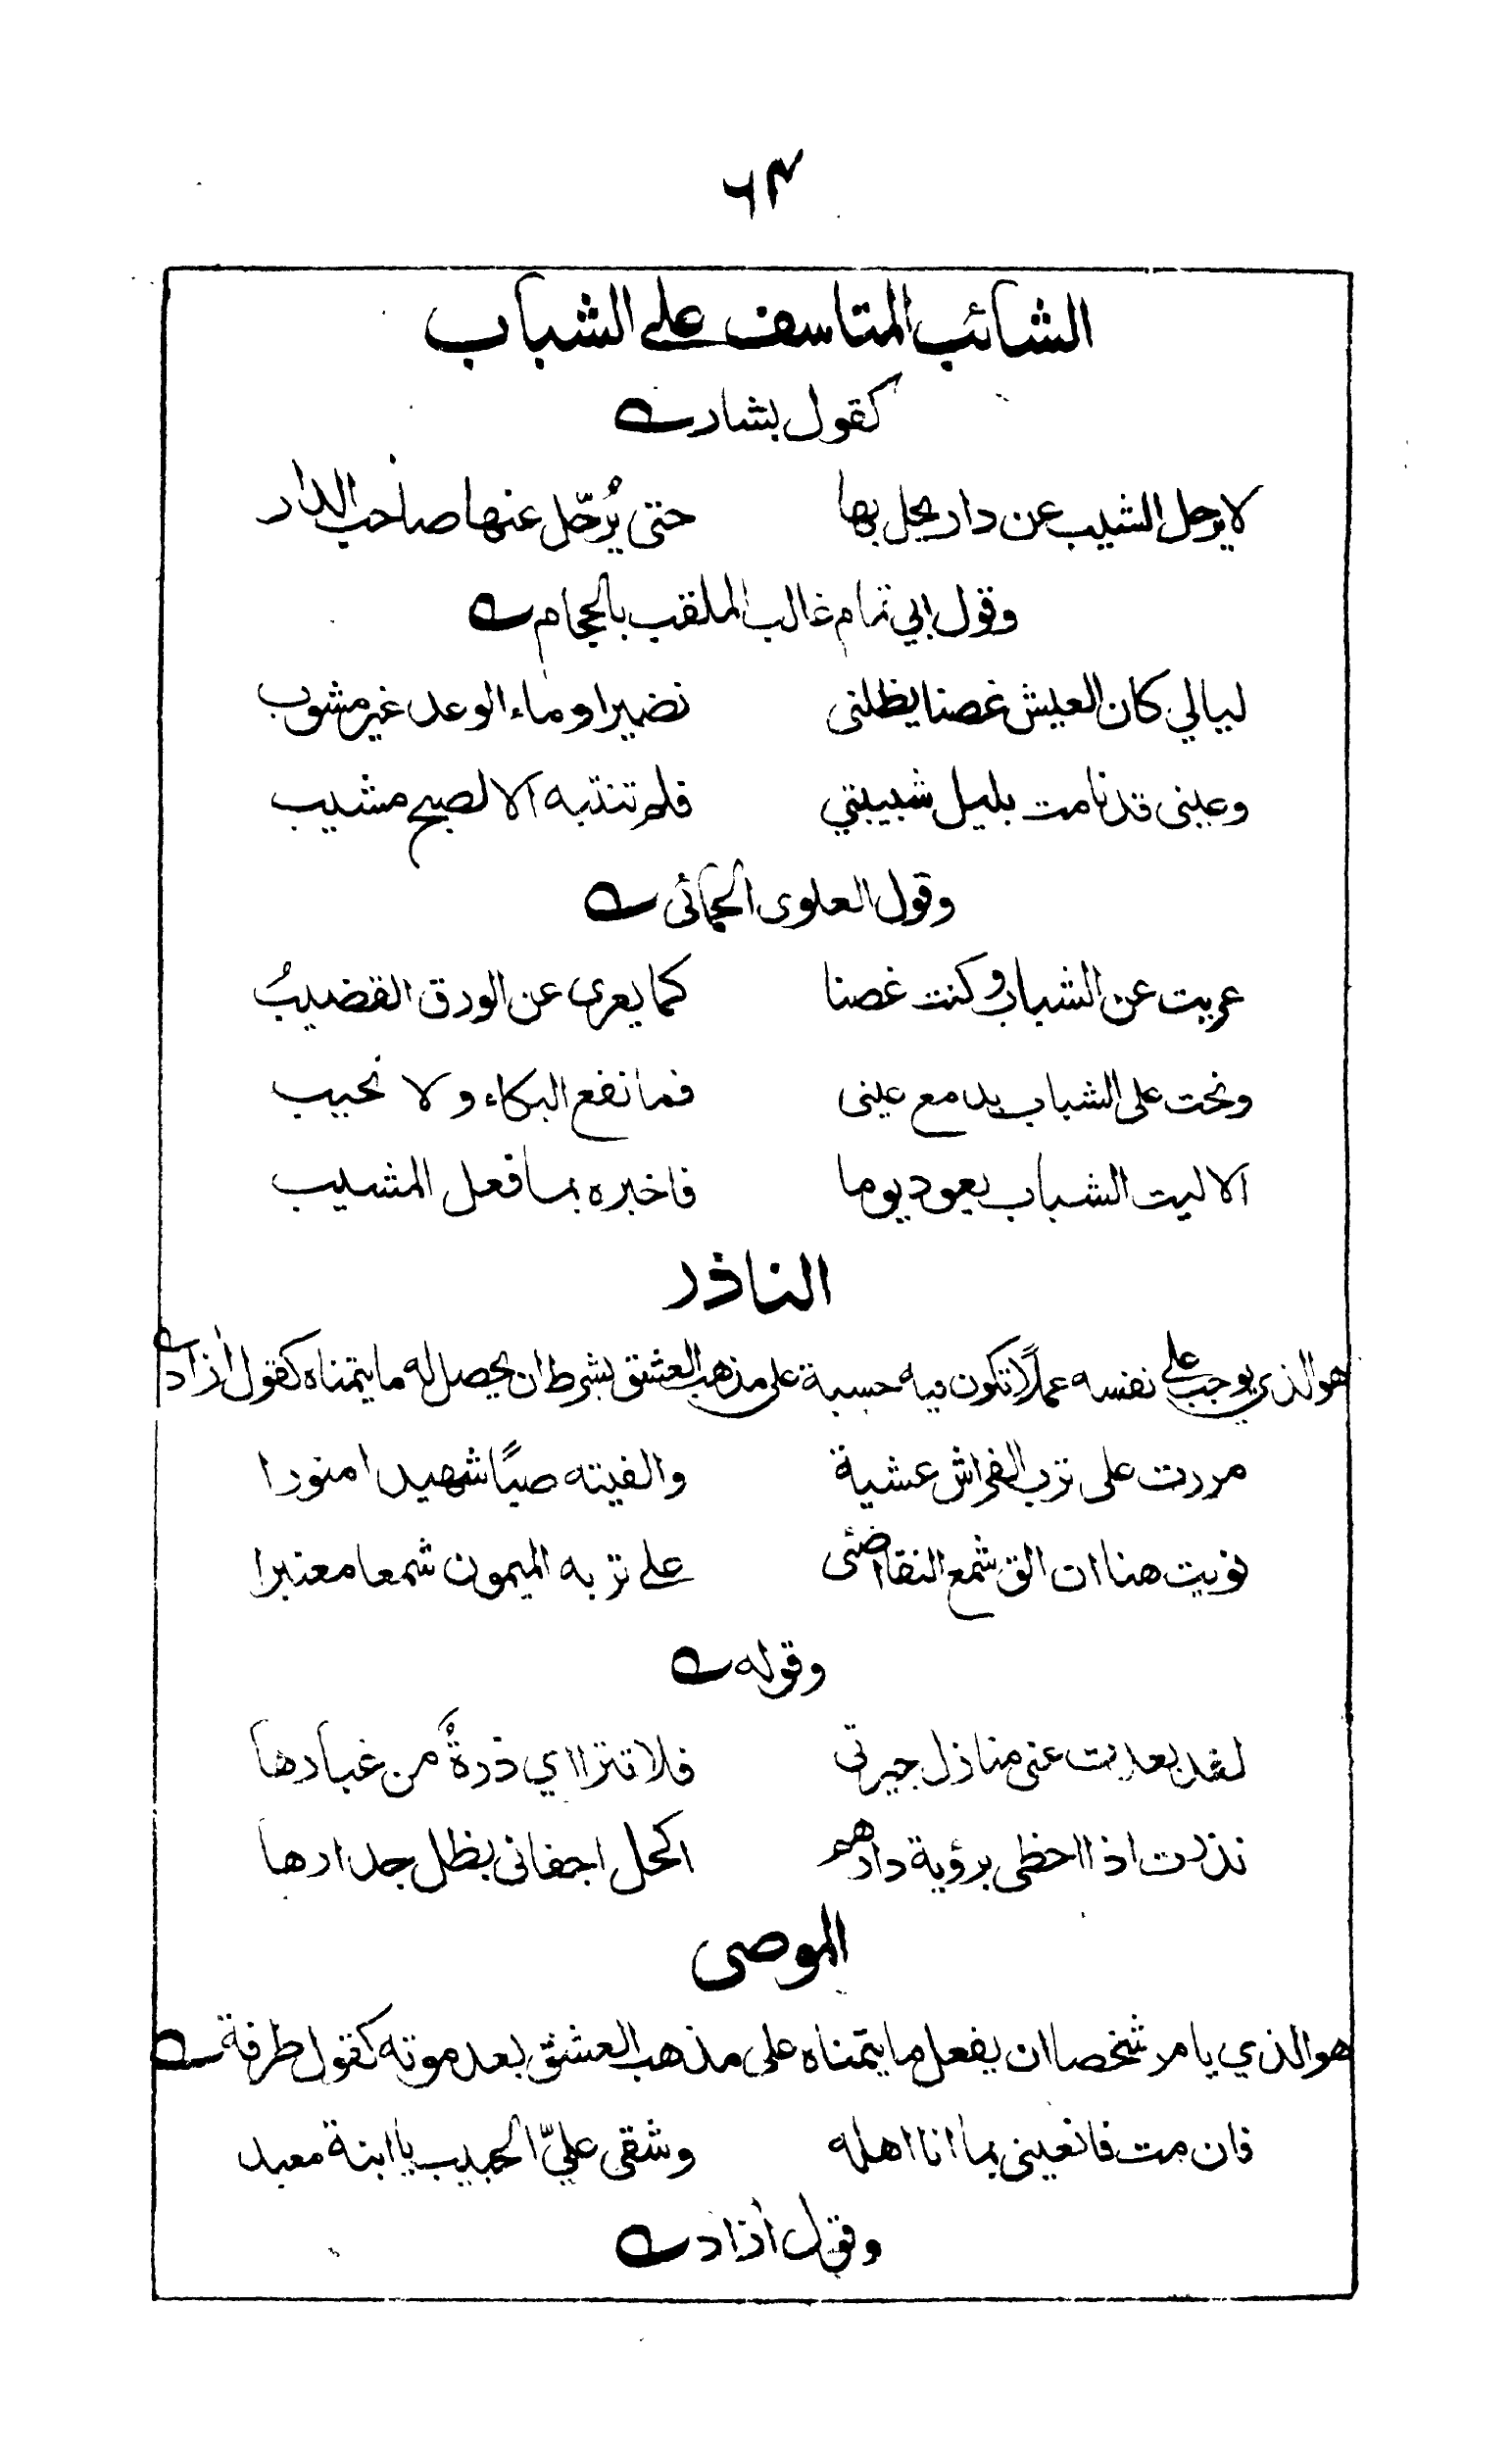 ٦٣
الشائب المتاسف على الشباب
كقول بشار
لا يرحل الشيب عن دار يحل بها حتى يُرحّل عنها صاحب الدار
وقول ابي تمام غالب الملقب بالحجام
ليالي كان العيش غصنا يظلنى نضيرا وماء الوعد غير مشوب
وعينى قد نامت بليل شبيبتي فلم تنتبه الا لصبح مشيب
وقول العلوى الحمانى
عريت عن الشباب وكنت غصنا كما يعرى عن الورق القضيبُ
ونحت على الشباب بدمع عينى فما نفع البكاء ولا نحيب
الا ليت الشباب يعود يوما فاخبره بما فعل المشيب
الناذر
هو الذي يوجب على نفسه عملًا تكون فيه حسبة على مذهب العشق بشرط ان يحصل له ما يتمناه كقول ازاد
مررت على ترب الفراش عشية والفيته صبًا شهيدا منورا
نويت هنا ان الق شمع النقا اضئى على تربه الميمون شمعا معنبرا
وقوله
لقد بعدت عنى منازل جيرتى فلا تترااي ذرةٌ من غبارها
نذرت اذا احظى برؤية دارهم اكحل اجفانى بظل جدارها
الموصى
هو الذي يامر شخصا ان يفعل ما يتمناه على مذهب العشق بعد موته كقول طرفة
فان مت فانعينى بما انا اهله وشقى عليّ الجيب يا ابنة معبد
وقول ازاد